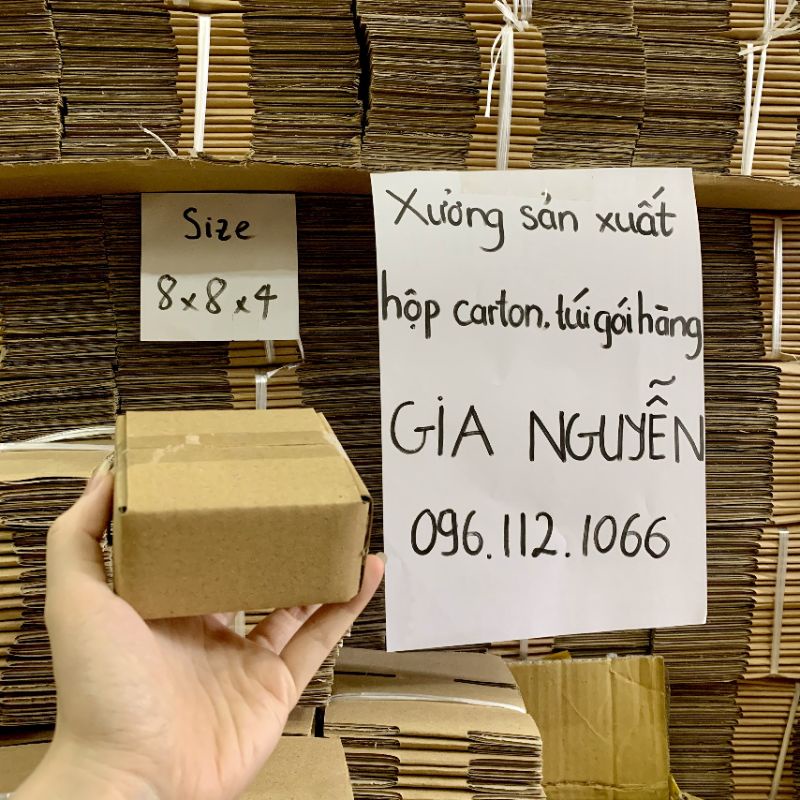 Size
8x8x4
Xưởng sản xuất
hộp carton, túi gói hàng
GIA NGUYỄN
096.112.1066